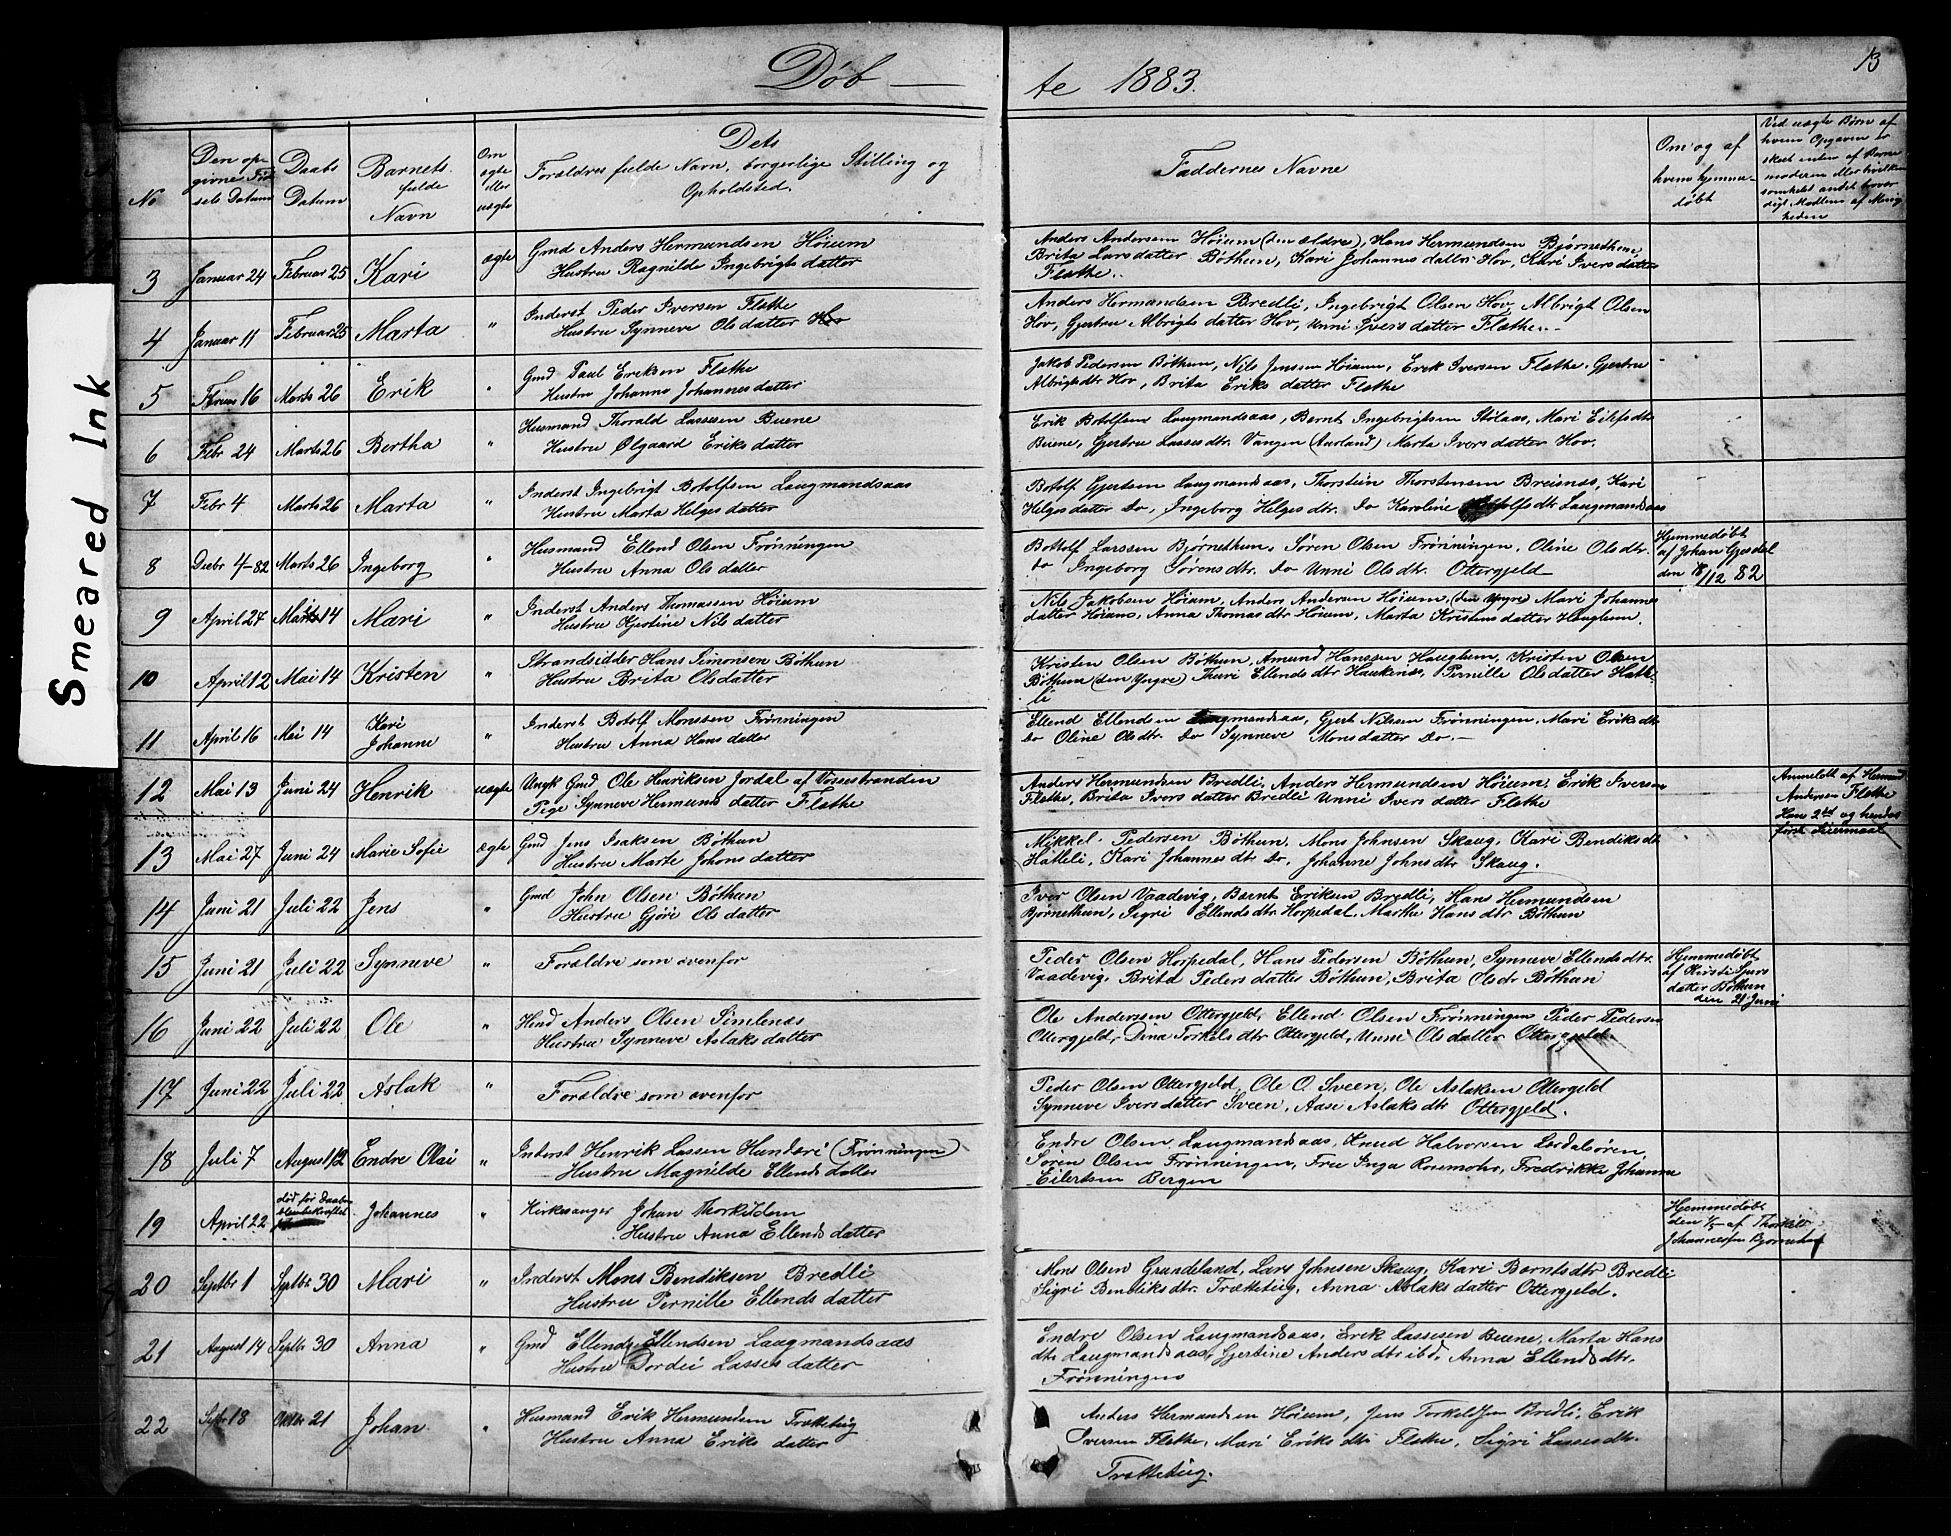 Døb — te 1883.
13
Smeared Ink
No
Den opgivne Fødsels Datum
Daabs Datum
Barnets fulde Navn
Om ægte eller uægte
Dets Forældres fulde Navn, borgerlige Stilling og Opholdsted.
Faddernes Navne
Om og af hvem hjemmedøbt
Ved uægte Børn af hvem Opgaven er skeet enten af Barnemoderen eller hvilken somhelst anden troværdigt Medlem af Menigheden
3 Januar 24 Februar 25 Kari ægte Gmd Anders Hermundsen Høium
Hustru Ragnilde Ingebrigtsdatter
Anders Andersen Høium (den ældre), Hans Hermundsen Bjørnethun,
Brita Larsdatter Bøthun, Kari Johannesdatter Hov, Kari Iversdatter
Flathe.
4 Januar 11 Februar 25 Marta " Inderst Peder Iversen Flathe
Hustru Synneve Olsdatter Hov
Anders Hermandsen Bredli, Ingebrigt Olsen Hov, Albrigt Olsen
Hov, Gjertru Albrigtsdatter Hov, Unni Iversdatter Flathe.
5 16 Marts 26 Erik " Gmd Paul Eriksen Flathe
Hustru Johanna Johannesdatter
Jakob Pedersen Bøthun, Nils Jenssen Høium, Erik Iversen Flathe, Gjertru
Albrigtsdtr Hov, Brita Eriksdatter Flathe
6 Febr 24 Marts 26 Bertha " Husmand Thorald Lassesen Buene
Hustru Ølgaard Eriksdatter
Erik Botolfsen Laugmandsaas, Bernt Ingebrigtsen Stølaas, Mari Eilefsdtr
Buene, Gjertru Lassesdtr. Vangen (Aurland) Marta Iversdatter Hov.
7 Febr 4 Marts 26 Marta " Inderst Ingebrigt Botolfsen Laugmandsaas
Hustru Marta Helgesdatter
Botolf Gjertsen Laugmandsaas, Thorstein Thorstensen Breisnes, Kari
Helgesdatter Do, Ingeborg Helgesdtr. Do Karoline Botolfsdtr Laugmandsaas
8 Decbr 4-82 Marts 26 Ingeborg " Husmand Ellend Olsen Frønningen
Hustru Anna Olsdatter
Bottolf Larssen Bjørnethun, Søren Olsen Frønningen, Oline Olsdtr.
Do Ingeborg Sørensdtr. Do Unni Olsdtr. Ottergjeld
Hjemmedøbt
af Johan Gjesdal
den 18/12 82
9 April 27 Mai 14 Mari " Inderst Anders Thomassen Høium
Hustru Gjertine Nilsdatter
Nils Jakobsen Høium, Anders Andersen Høium, (den Yngre) Mari Johannes
datter Høium, Anna Thomasdtr Høium, Marta Kristensdatter Haughum.
10 April 12 Mai 14 Kristen " Strandsidder Hans Simonsen Bøthun
Hustru Brita Olsdatter
Kristen Olsen Bøthun, Amund Hanssen Haughum, Kristen Olsen
Bøthun (den Yngre) Thuri Ellendsdtr Haukenæs, Pernille Olsdatter Hatle-
li
11 April 16 Mai 14 Kari
Johanne " Inderst Botolf Monssen Frønningen
Hustru Anna Hansdatter
Ellend Ellendsen Laugmandsaas, Gjert Nilssen Frønningen, Mari Eriksdtr
Do Oline Olsdtr. Do Synneve Monsdatter Do. —
12 Mai 13 Juni 24 Henrik uægte Ungk Gmd Ole Henriksen Jordal af Vossestranden
Pige Synneve Hermundsdatter Flathe
Anders Hermundsen Bredli, Anders Hermundsen Høium, Erik Iversen
Flathe, Brita Iversdatter Bredli Unni Iversdatter Flathe
Anmeldt af Hermund
Andersen Flathe
Hans 2det og hendes
første Leiermaal
13 Mai 27 Juni 24 Marie Sofie ægte Gmd Jens Isaksen Bøthun
Hustru Marte Johansdatter
Mikkel Pedersen Bøthun, Mons Johnsen Skaug, Kari Bendiksdtr
Hatleli, Kari Johannesdtr Do, Johanne Johnsdtr Skaug.
14 Juni 21 Juli 22 Jens " Gmd John Olsen Bøthun
Hustru Gjøri Olsdatter
Iver Olsen Vaadevig, Bernt Eriksen Bredli, Hans Hermundsen
Bjørnethun, Sigri Ellendsdtr Horpedal, Marthe Hansdtr Bøthun
15 Juni 21 Juli 22 Synneve " Forældre som ovenfor
Peder Olsen Horpedal, Hans Pedersen Bøthun, Synneve Ellendsdtr.
Vaadevig, Brita Pedersdatter Bøthun, Brita Olsdtr Bøthun
Hjemmedøbt
af Kirsti Sjurs
datter Bøthun
den 21 Juni
16 Juni 22 Juli 22 Ole " Hmd Anders Olsen Simlenæs
Hustru Synneve Aslaksdatter
Ole Anderssen Ottergjeld, Ellend Olsen Frønningen Peder Pedersen
Ottergjeld, Dina Torkelsdtr Ottergjeld, Unni Olsdatter Ottergjeld
17 Juni 22 Juli 22 Aslak " Forældre som ovenfor
Peder Olsen Ottergjeld, Ole O. Sveen, Ole Aslaksen Ottergjeld
Synneve Iversdatter Sveen, Aase Aslaksdtr Ottergjeld.
18 Juli 7 August 12 Endre Olai " Inderst Henrik Lassen Hunderi (Frønningen)
Hustru Magnilde Ellendsdatter
Endre Olsen Laugmandsaas, Knud Halvorsen Lærdalsøren,
Søren Olsen Frønningen, Fru Inga Rosemohr, Fredrikke Johanna
Eilertsen Bergen
19 April 22 død før Daaben
blev bekræftet Johannes " Kirkesanger Johan Thorkildsen
Hustru Anna Ellendsdatter
Hjemmedøbt
den 1/5 af Thorkild
Johannessen Bjørnethun
20 Septbr 1 Septbr 30 Mari " Inderst Mons Bendiksen Bredli
Hustru Pernille Ellendsdatter
Mons Olsen Grundeland, Lars Johnsen Skaug, Kari Berntsdtr Bredli
Sigri Bendiksdtr. Trætteteig, Anna Aslaksdatter Ottergjeld.
21 August 14 Septbr 30 Anna " Gmd Ellend Ellendsen Laugmandsaas
Hustru Dordei Lassesdatter
Endre Olsen Laugmandsaas, Erik Lassesen Buene, Marta Hans
dtr Laugmandsaas, Gjertine Andersdtr ibd, Anna Ellendsdtr.
Frønningen
22 Septbr 18 Oktbr 21 Johan " Husmand Erik Hermundsen Trætteteig
Hustru Anna Eriksdatter
Anders Hermandsen Høium, Jens Torkelsen Bredli, Erik
Iversen Flathe, Mari Eriksdtr Flathe, Sigri Lassesdtr.
Trætteteig.